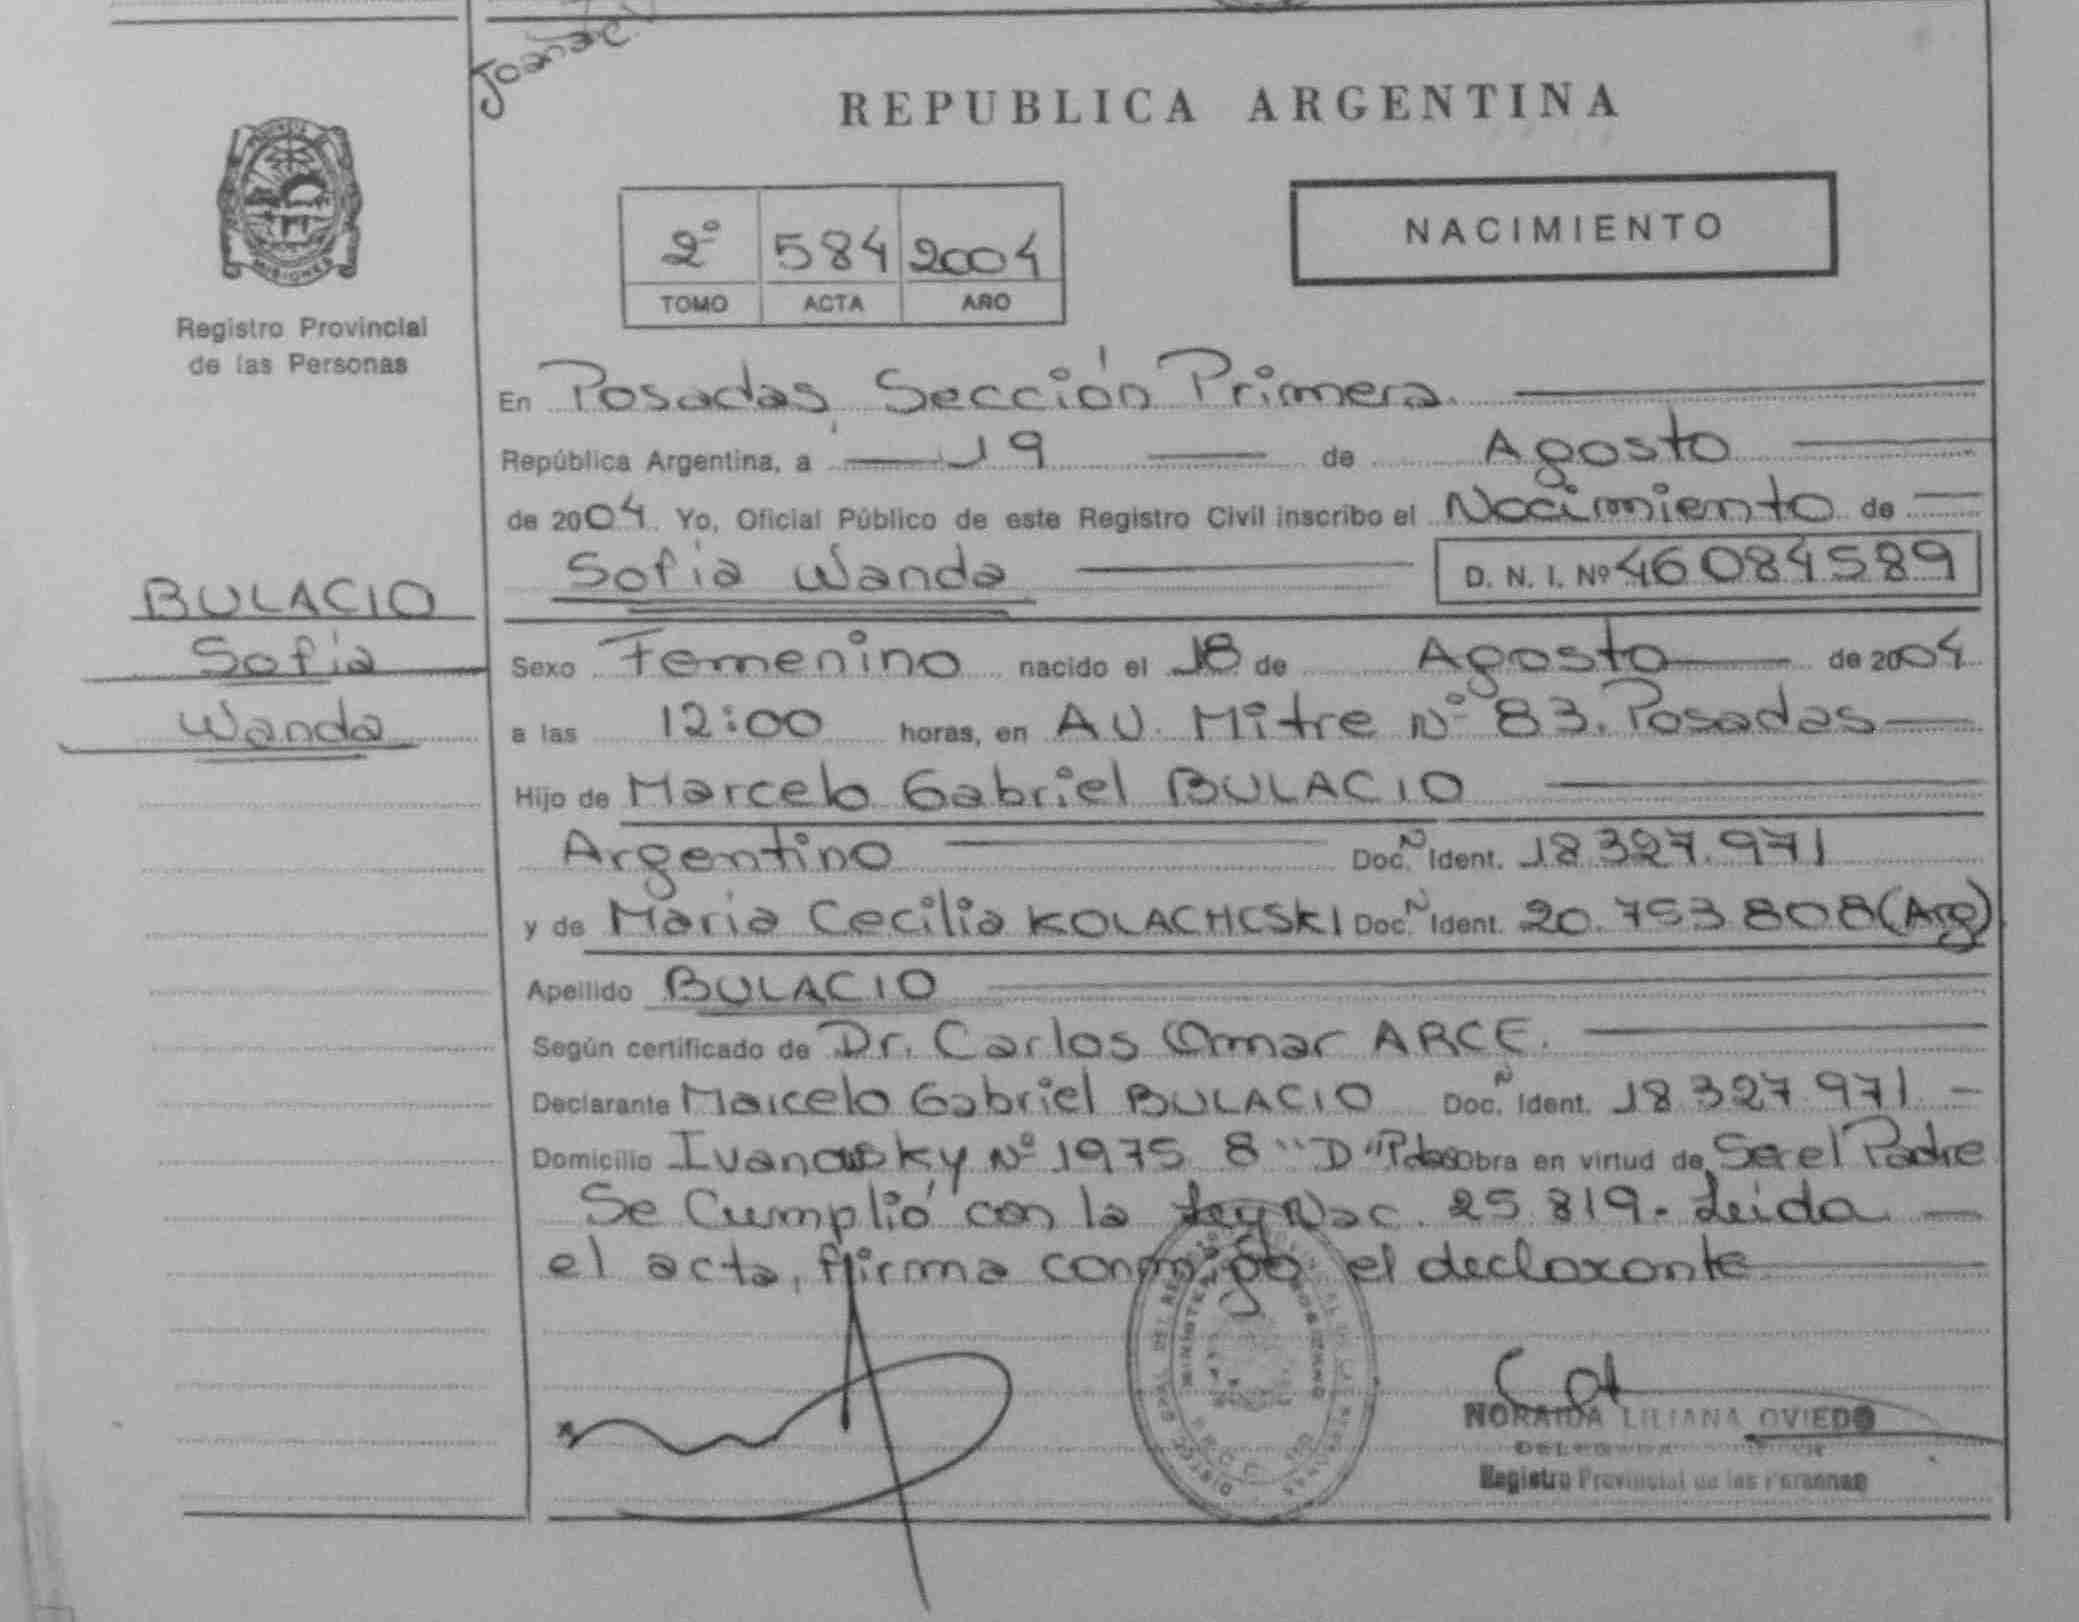 REPUBLICA ARGENTINA
MISIONES
Registro Provincial
de las Personas
2º 584 2004
TOMO ACTA AÑO
NACIMIENTO
En Posadas, Sección Primera.
República Argentina, a 19 de Agosto
de 2004. Yo, Oficial Público de este Registro Civil inscribo el Nacimiento de
Sofia Wanda D. N. I. Nº 46084589
BULACIO
Sofia
Wanda
Sexo Femenino nacido el 18 de Agosto de 2004
a las 12:00 horas, en AV. Mitre Nº 83. Posadas
Hijo de Marcelo Gabriel BULACIO
Argentino Doc. N Ident. 18.327.971
y de Maria Cecilia KOLACHCSKI Doc. N Ident. 20.753.808 (Arg)
Apellido BULACIO
Según certificado de Dr. Carlos Omar ARCE.
Declarante Marcelo Gabriel BULACIO Doc. N Ident. 18.327.971.
Domicilio Ivanowsky Nº 1975 8 "D" obra en virtud de Ser el Padre
Se Cumplió con la Ley Nac. 25.819. Leida
el acta, firma conmigo el declarante
NORAIDA LILIANA OVIEDO
Registro Provincial de las Personas